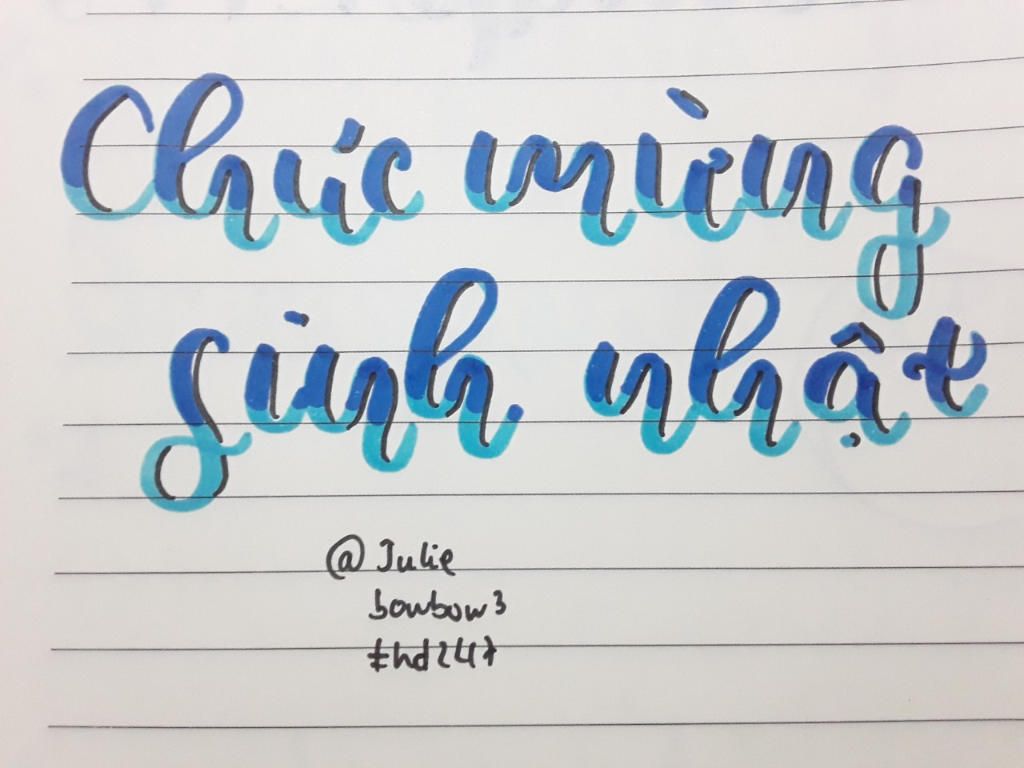 Chúc mừng
sinh nhật
@Julie
bowbow3
thd247